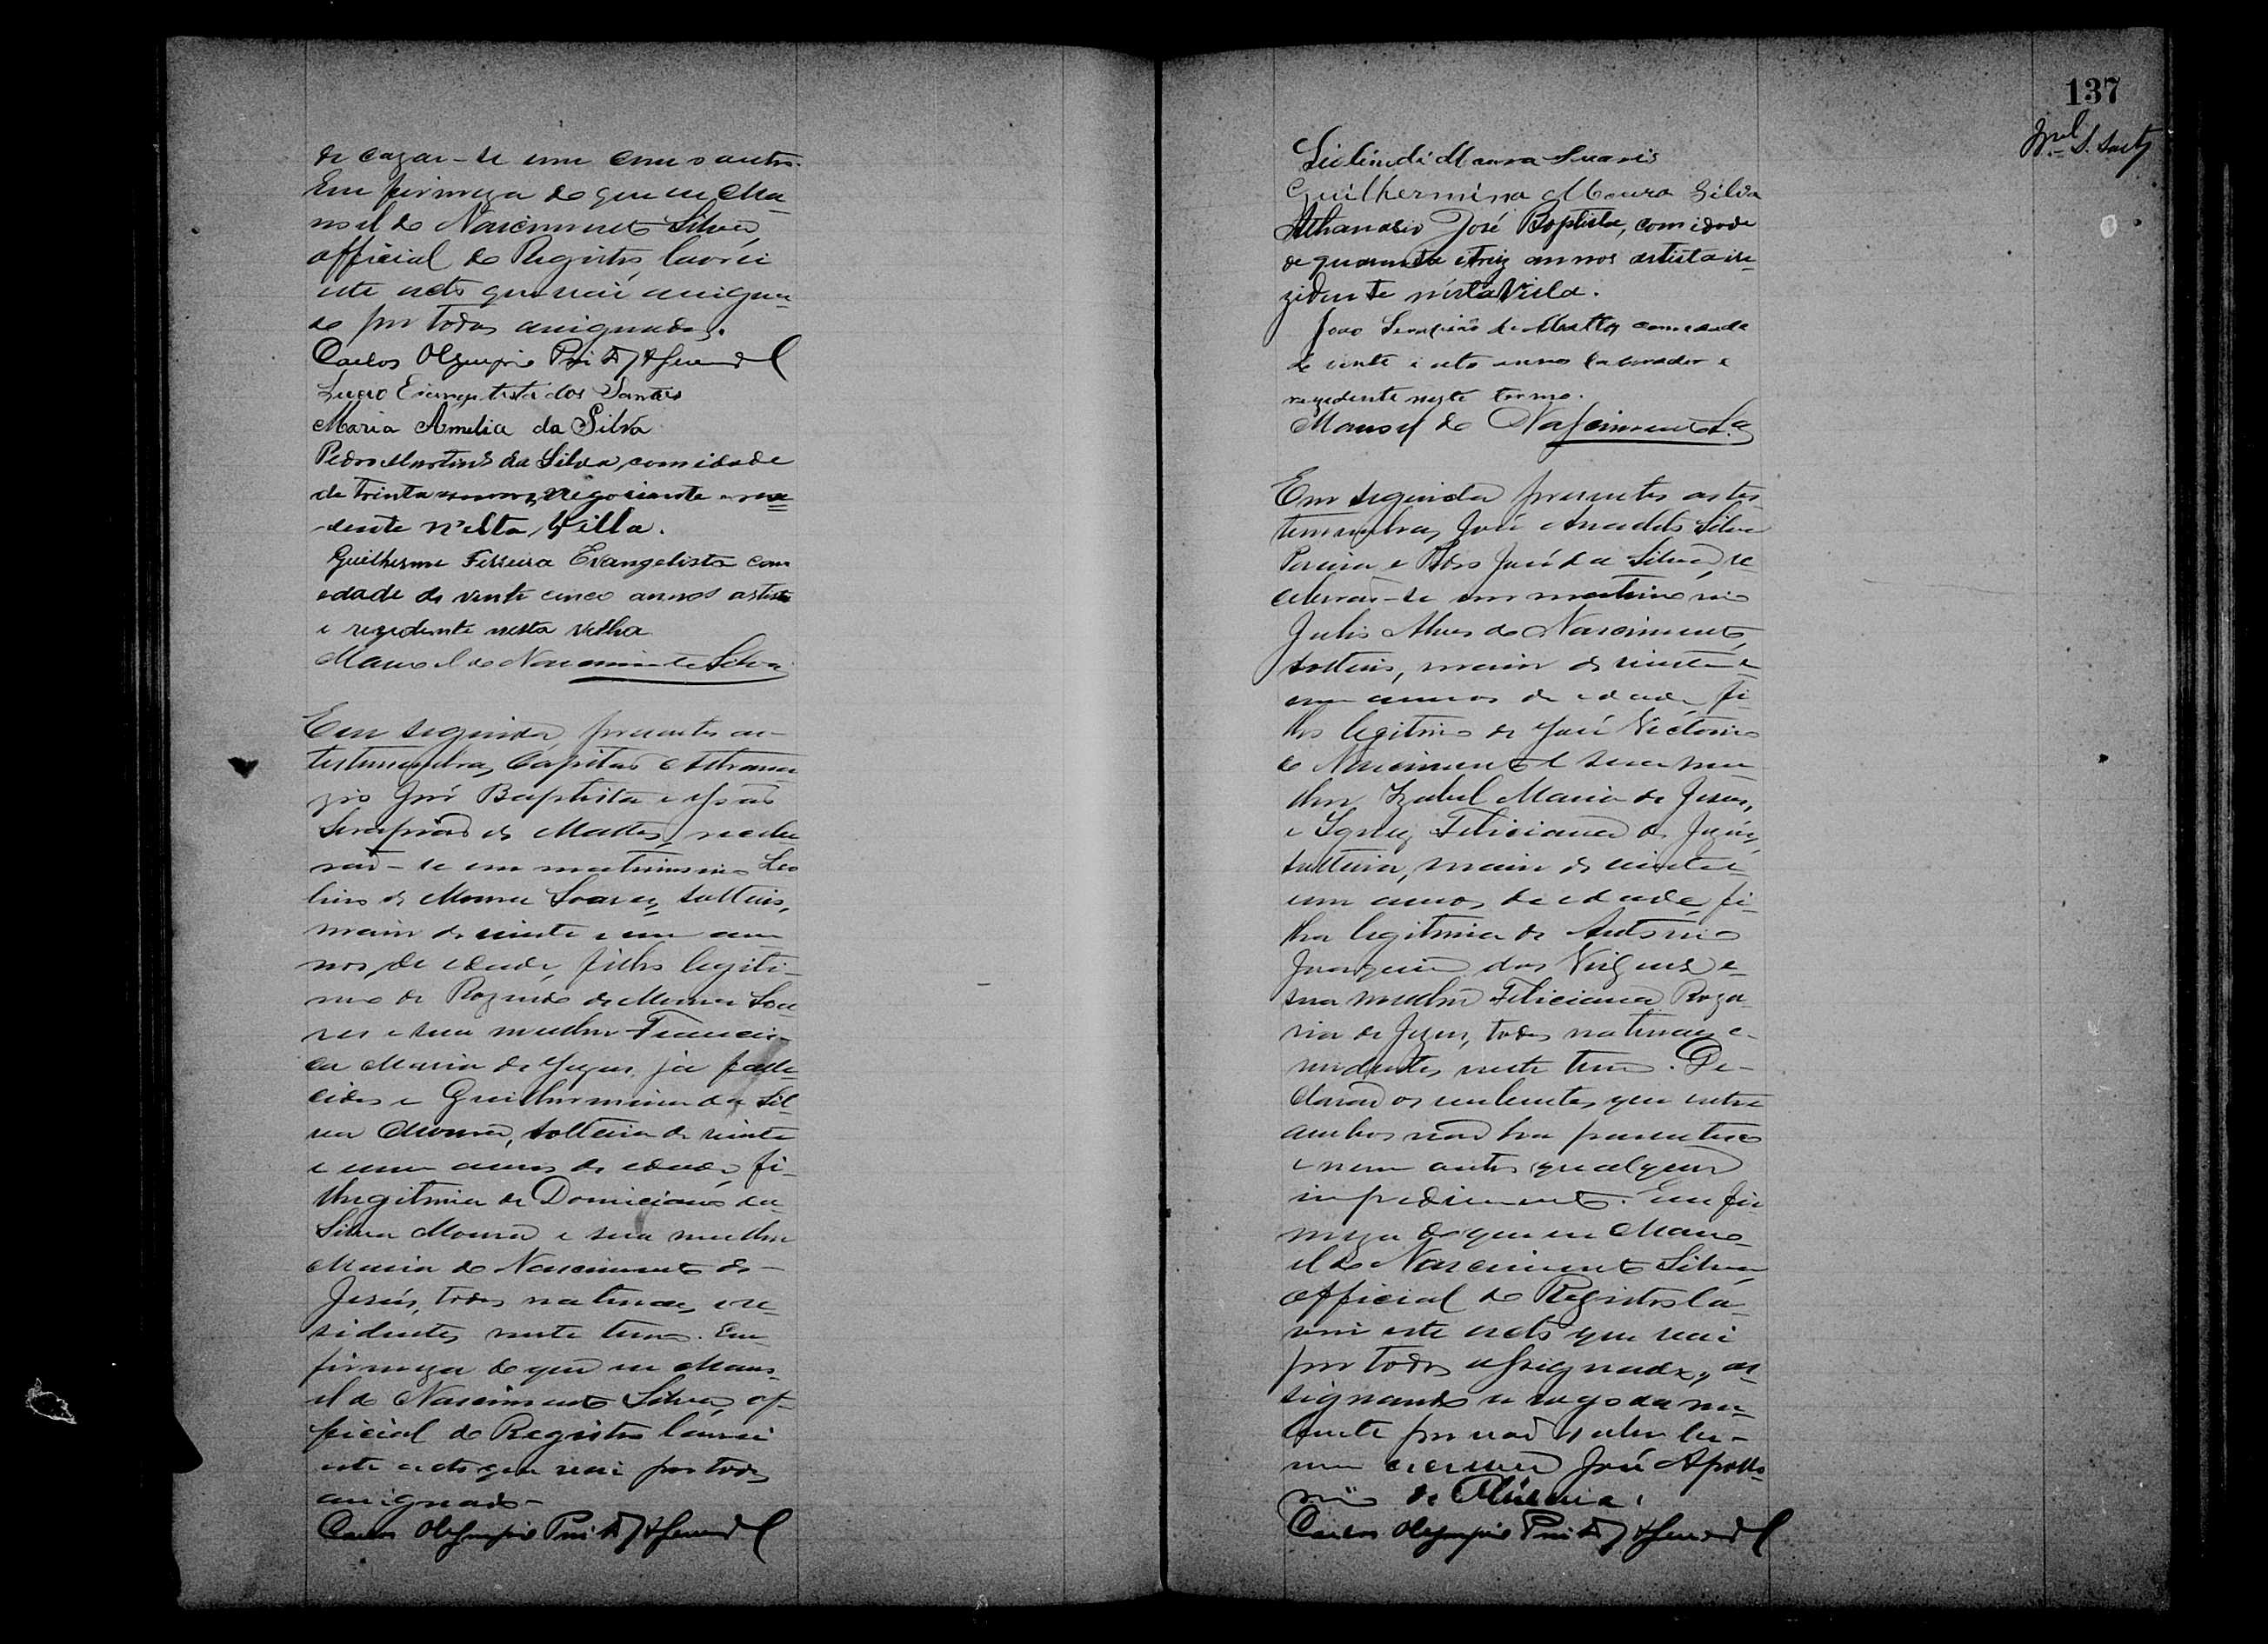 de cazar-se um com o outro.
Em firmeza do que eu Ma-
noel do Nascimento Silva,
official do Registro, lavrei
este acto que vai assigna-
do por todos assignados.
Carlos Olympio
Lucio Evangelista dos Santos
Maria Amelia da Silva
Pedro Martins da Silva, com idade
de trinta annos, negociante e rese
dente n'esta Villa.
Guilherme Ferreira Evangelista com
edade de vinte cinco annos artista
e rezedente nesta velha
Manoel do Nascimento Silva
Em seguida, presentes as
testemunhas, Capitão Athana
zio José Baptista e João
Serapião de Mattos, recebe
rão-se em matrimonio Leo
lino de Moura Soares, solteiro,
maior de vinte e um an
nos, de edade, filho legiti-
mo de Rozendo de Moura Soa
res e sua mulher Francis-
ca Maria de Jezus, já falle
cidos e Guilhermina da Sil-
va Moura, solteira de vinte
e um annos de edade, fi-
lha legitima de Domiciano da
Silva Moura e sua mulher
Maria do Nascimento de
Jesús, todos naturaes, e re-
sidentes neste termo. Em
firmeza do que eu Mano-
el do Nascimento Silva, of-
ficial do Registro lavrei
este acto que vai por todos
assignado-
Carlos Olympio
137
Moura Soares
Guilhermina Moura Silva
Athanasio José Baptista, com idade
de quarenta e trez annos artista re-
zidente nésta Villa.
João Serapião de Mattos com edade
de vinte e oito annos lavorador e
rezedente neste termo.
Manoel do Nascimento S.a
Em seguida presentes as tes
temunhas, José Anacleto Silva
Pereira e Pedro José da Silva, re
ceberão-se em matrimonio
Julio Alves do Nascimento,
solteiro, maior de vinte e
um annos de edade, fi
lho legitimo de José Victorino
do Nascimento e sua mu
lher Izabel Maria de Jesus,
e Ignez Feliciana de Jezús,
solteira, maior de vinte e
um annos de edade, fi-
lha legitima de Antonio
Joaquim das Virgens e
sua mulher Feliciana Roza
ria de Jezus, todos naturaes e
rezidentes neste termo. De-
clarão os nubentes que entre
ambos não ha parentesco
e nem outro qualquer
impedimento. Em fir
meza do que eu Mano
el do Nascimento Silva,
official do Registro la-
vrei este acto que vai
por todos assignado, as
signando a rogo da nu-
bente por não saber ler
nem escrever José Apollo
nio de Oliveira.
Carlos Olympio